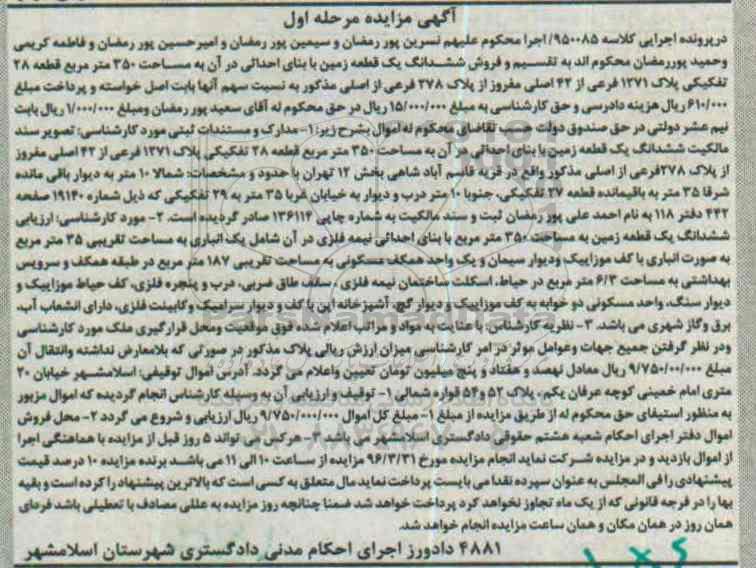 آگهی مزایده مرحله اول
درپرونده اجرایی کلاسه ۹۵۰۰۸۵/اجرا محکوم علیهم نسرین پور رمضان و سیمین پور رمضان و امیرحسین پور رمضان و فاطمه کریمی
وحمید پوررمضان محکوم اند به تقسیم و فروش ششدانگ یک قطعه زمین با بنای احداثی در آن به مساحت ۳۵۰ متر مربع قطعه ۲۸
تفکیکی پلاک ۱۲۷۱ فرعی از ۴۲ اصلی مفروز از پلاک ۲۷۸ فرعی از اصلی مذکور به نسبت سهم آنها بابت اصل خواسته و پرداخت مبلغ
۶۱۰/۰۰۰ ریال هزینه دادرسی و حق کارشناسی به مبلغ ۱۵/۰۰۰/۰۰۰ ریال در حق محکوم له آقای سعید پور رمضان ومبلغ ۱/۰۰۰/۰۰۰ ریال بابت
نیم عشر دولتی در حق صندوق دولت حسب تقاضای محکوم له اموال بشرح زیر: ۱- مدارک و مستندات ثبتی مورد کارشناسی: تصویر سند
مالکیت ششدانگ یک قطعه زمین با بنای احداثی در آن به مساحت ۳۵۰ متر مربع قطعه ۲۸ تفکیکی پلاک ۱۲۷۱ فرعی از ۴۲ اصلی مفروز
از پلاک ۲۷۸فرعی از اصلی مذکور واقع در قریه قاسم آباد شاهی بخش ۱۲ تهران با حدود و مشخصات: شمالا ۱۰ متر به دیوار باقی مانده
شرقا ۳۵ متر به باقیمانده قطعه ۲۷ تفکیکی، جنوبا ۱۰ متر درب و دیوار به خیابان غربا ۳۵ متر به ۲۹ تفکیکی که ذیل شماره ۱۹۱۴۰ صفحه
۴۴۲ دفتر ۱۱۸ به نام احمد علی پور رمضان ثبت و سند مالکیت به شماره چاپی ۱۳۶۱۱۴ صادر گردیده است. ۲- مورد کارشناسی: ارزیابی
ششدانگ یک قطعه زمین به مساحت ۳۵۰ متر مربع با بنای احداثی نیمه فلزی در آن شامل یک انباری به مساحت تقریبی ۳۵ متر مربع
به صورت انباری با کف موزاییک ودیوار سیمان و یک واحد همکف مسکونی به مساحت تقریبی ۱۸۷ متر مربع در طبقه همکف و سرویس
بهداشتی به مساحت ۶/۳ متر مربع در حیاط، اسکلت ساختمان نیمه فلزی، سقف طاق ضربی، درب و پنجره فلزی، کف حیاط موزاییک و
دیوار سنگ، واحد مسکونی دو خوابه به کف موزاییک و دیوار گچ، آشپزخانه اپن با کف و دیوار سرامیک وکابینت فلزی، دارای انشعاب آب،
برق وگاز شهری می باشد. ۳- نظریه کارشناس: با عنایت به مواد و مراتب اعلام شده فوق موقعیت ومحل قرارگیری ملک مورد کارشناسی
ودر نظر گرفتن جمیع جهات وعوامل موثر در امر کارشناسی میزان ارزش ریالی پلاک مذکور در صورتی که بلامعارض نداشته وانتقال آن
مبلغ ۹/۷۵۰/۰۰۰/۰۰۰ ریال معادل نهصد و هفتاد و پنج میلیون تومان تعیین واعلام می گردد. آدرس اموال توقیفی: اسلامشهر خیابان ۲۰
متری امام خمینی کوچه عرفان یکم پلاک ۵۲ و۵۴ قواره شمالی ۱- توقیف و ارزیابی آن به وسیله کارشناس انجام گردیده که اموال مزبور
به منظور استیفای حق محکوم له از طریق مزایده از مبلغ ۱- مبلغ کل اموال ۹/۷۵۰/۰۰۰/۰۰۰ ریال ارزیابی و شروع می گردد ۲- محل فروش
اموال دفتر اجرای احکام شعبه هشتم حقوقی دادگستری اسلامشهر می باشد ۳- هرکس می تواند ۵ روز قبل از مزایده با هماهنگی اجرا
از اموال بازدید و در مزایده شرکت نماید انجام مزایده مورخ ۹۶/۳/۳۱ مزایده از ساعت ۱۰ الی ۱۱ می باشد برنده مزایده ۱۰ درصد قیمت
پیشنهادی را فی المجلس به عنوان سپرده نقدا می بایست پرداخت نماید مال متعلق به کسی است که بالاترین پیشنهاد را کرده است و بقیه
بها را در فرجه قانونی که از یک ماه تجاوز نخواهد کرد پرداخت خواهد شد ضمنا چنانچه روز مزایده به عللی مصادف با تعطیلی باشد فردای
همان روز در همان مکان و همان ساعت مزایده انجام خواهد شد.
۴۸۸۱ دادورز اجرای احکام مدنی دادگستری شهرستان اسلامشهر